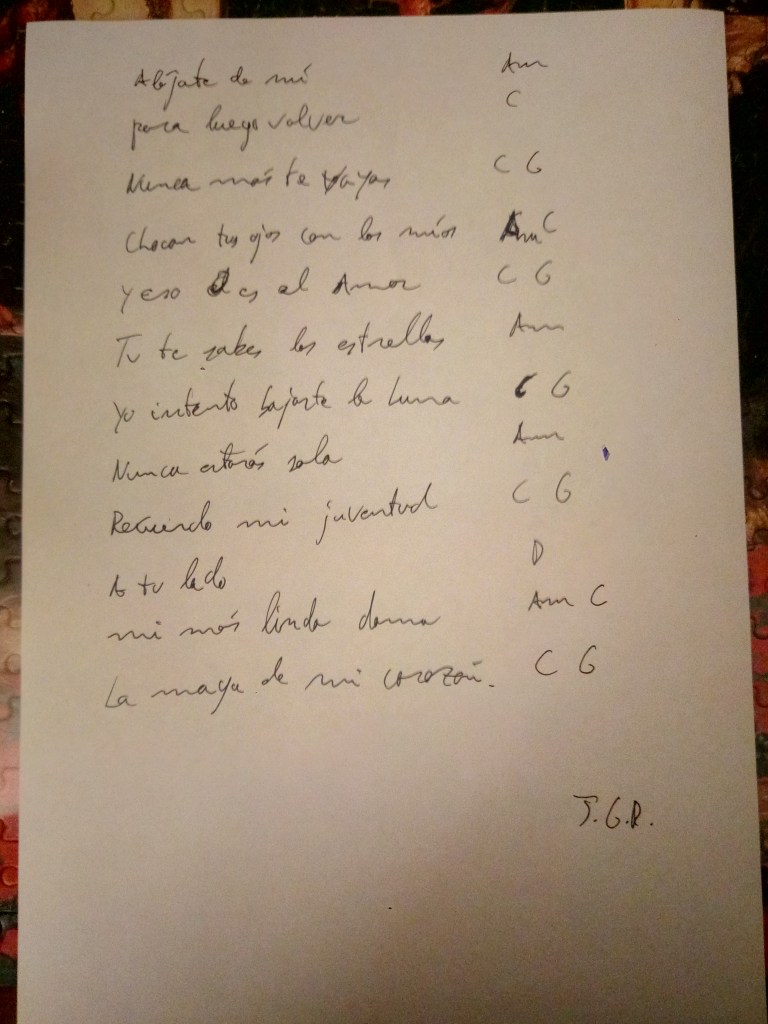 Aléjate de mí Am
para luego volver C
Nunca más te vayas C G
Chocan tus ojos con los míos Am C
y eso es el Amor C G
Tu te sabes las estrellas Am
Yo intento bajarte la Luna C G
Nunca estarás sola Am
Recuerdo mi juventud C G
A tu lado D
mi más linda dama Am C
La maga de mi corazón. C G
J.G.R.